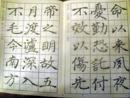 命以來夙夜
憂勤恐託付
不效以傷先
帝之明故五
月渡瀘深入
不毛今南方